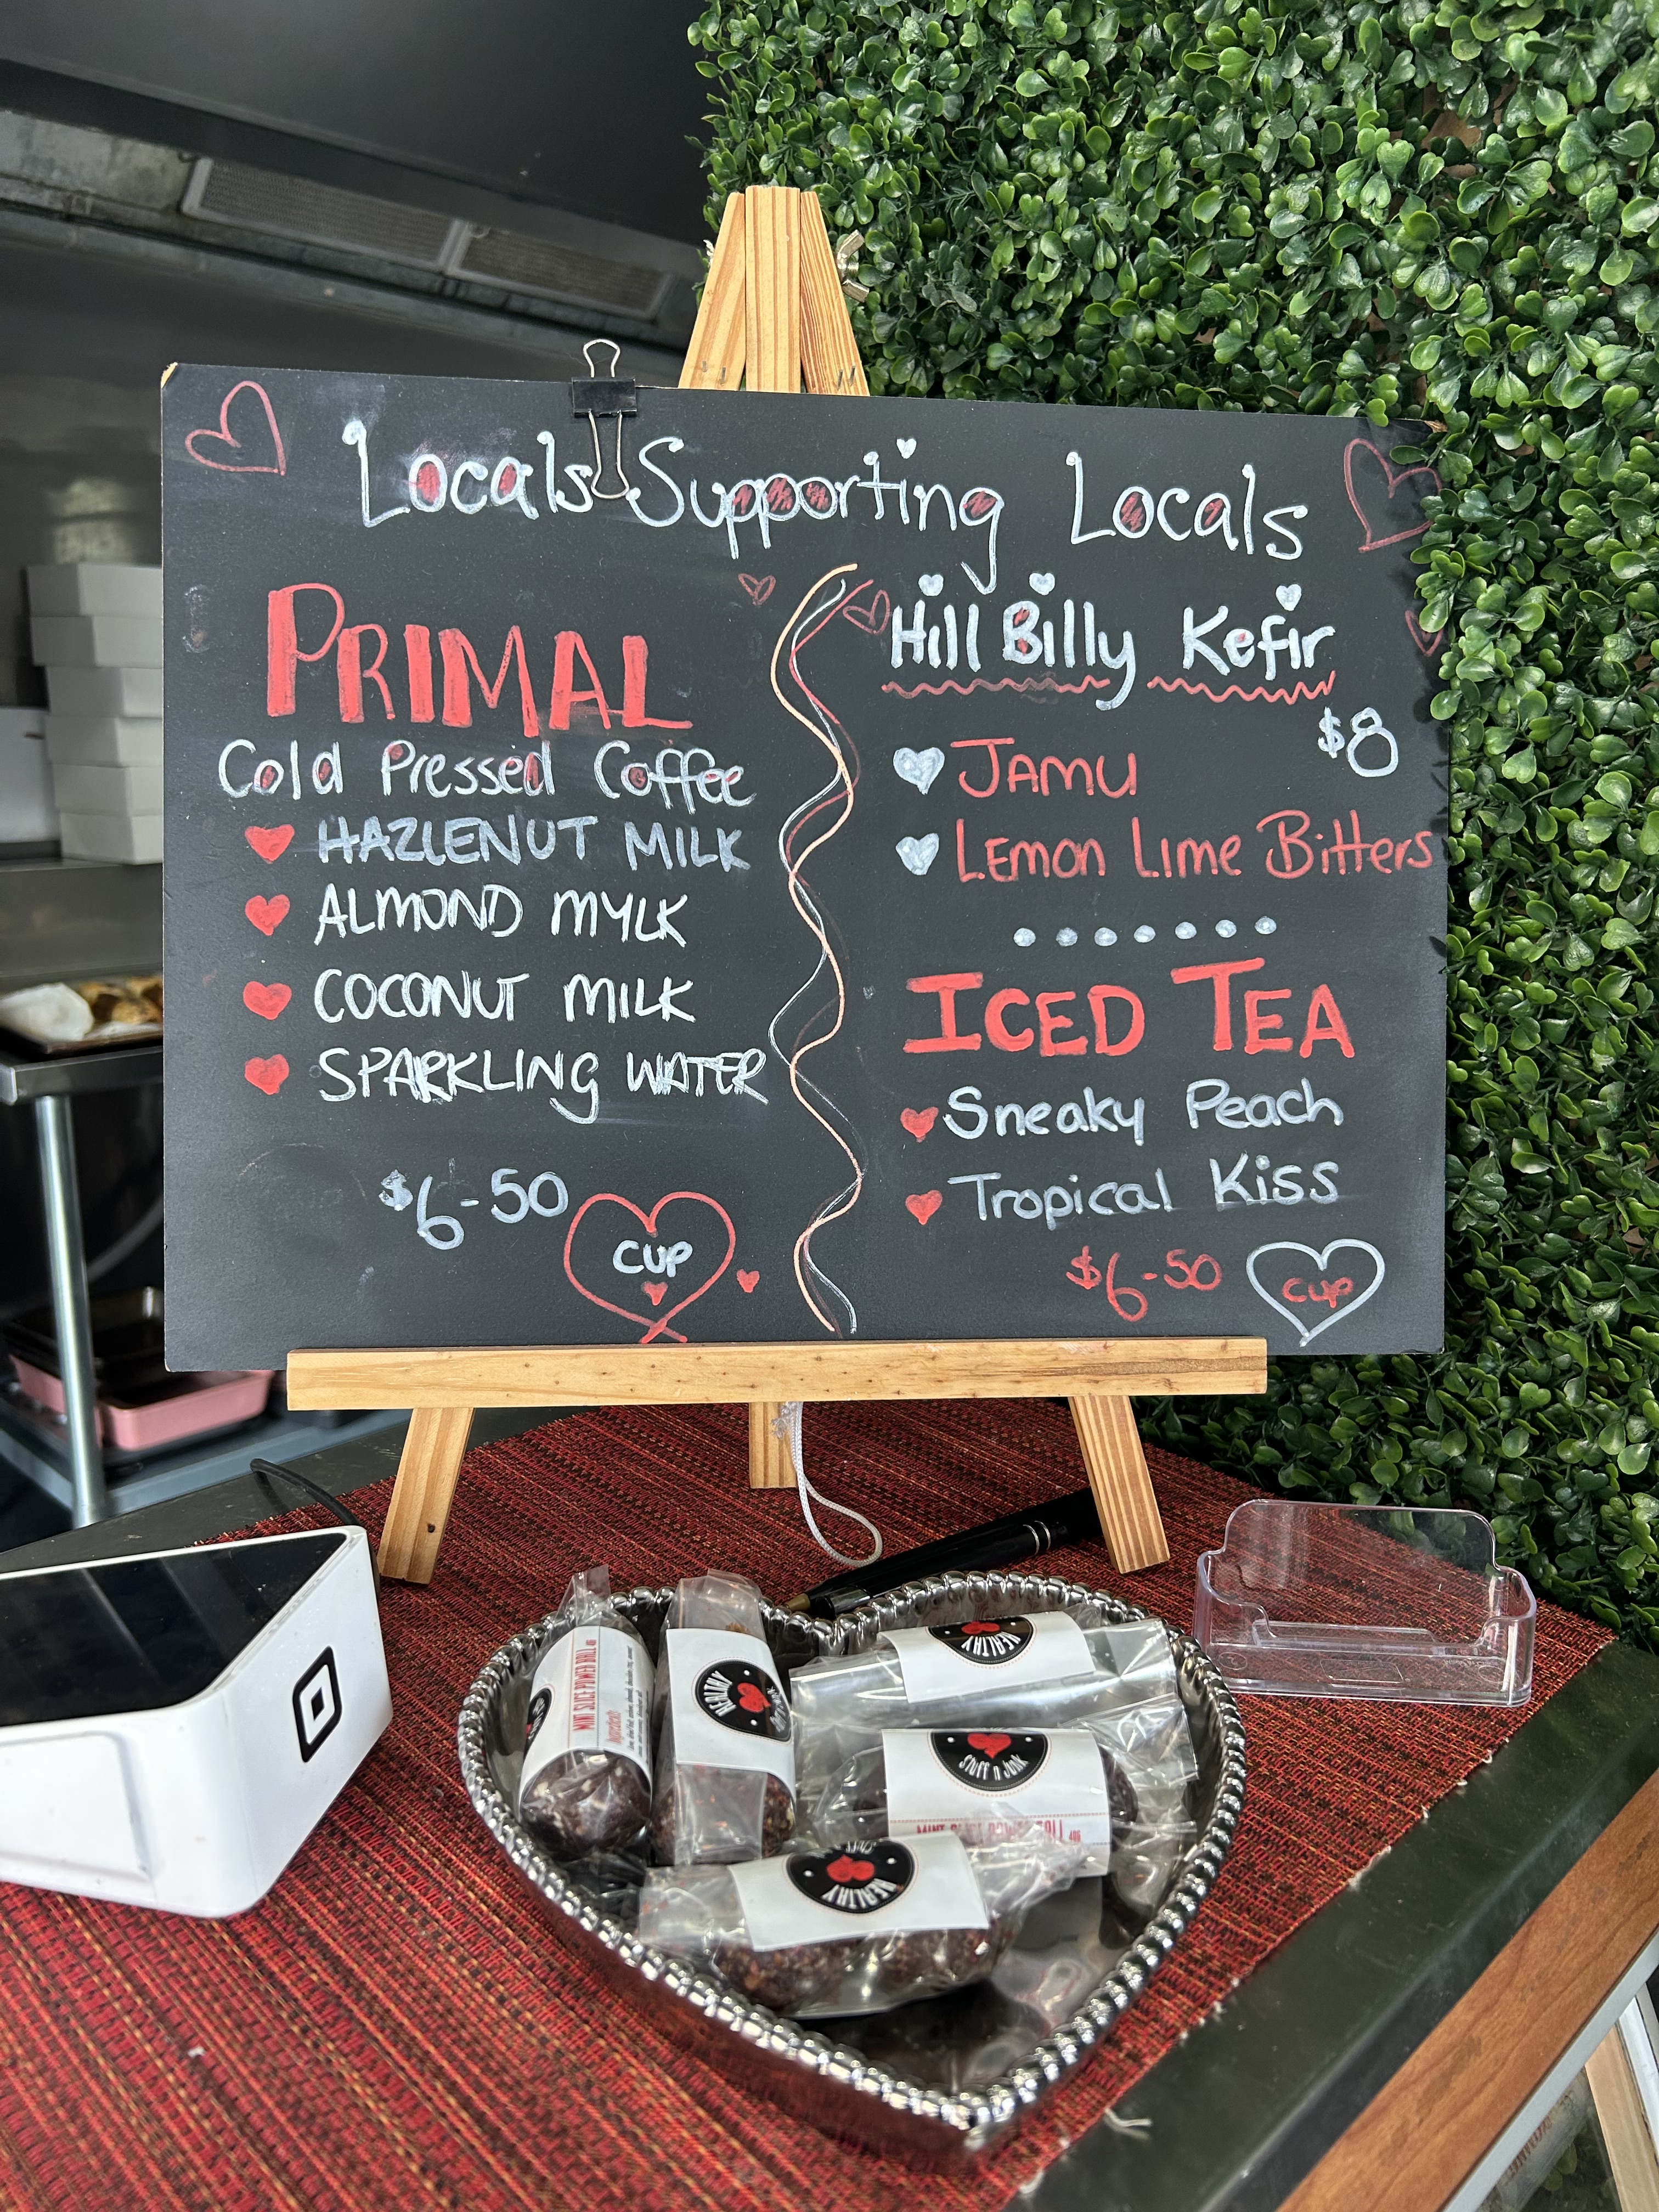 Locals Supporting Locals
PRIMAL
Cold Pressed Coffee
HAZLENUT MILK
ALMOND MYLK
COCONUT MILK
SPARKLING WATER
$6-50
CUP
Hill Billy Kefir
$8
JAMU
LEMON LIME BITTERS
ICED TEA
Sneaky Peach
Tropical Kiss
$6-50
CUP
MINT SLICE POWER BALL 40g
Ingredients
HEALTHY
HEALTHY
STUFF N JUNK
MINT SLICE POWER BALL 40g
HEALTHY